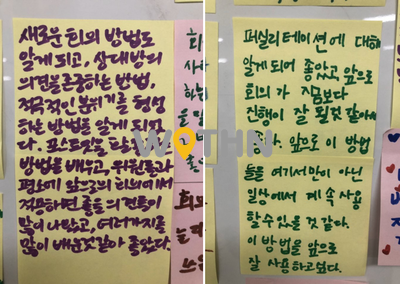 새로운 회의 방법도
알게 되고, 상대방의
의견을 존중하는 방법,
적극적인 분위기를 형성
하는 방법을 알게 되었
다. 포스트잇을
방법을 배우고, 위원들과
평소에 앞으로의 회의에서
적용하면 좋을 의견들이
많이 나왔고, 여러가지를
많이 배운것같아 좋았다.
퍼실리테이션에 대해
알게 되어 좋았고 앞으로
회의가 지금보다
진행이 잘 될것 같아서
좋다. 앞으로 이 방법
들을 여기서만이 아닌
일상에서 계속 사용
할 수 있을 것 같다.
이 방법을 앞으로
잘 사용하고싶다.
WOTHN